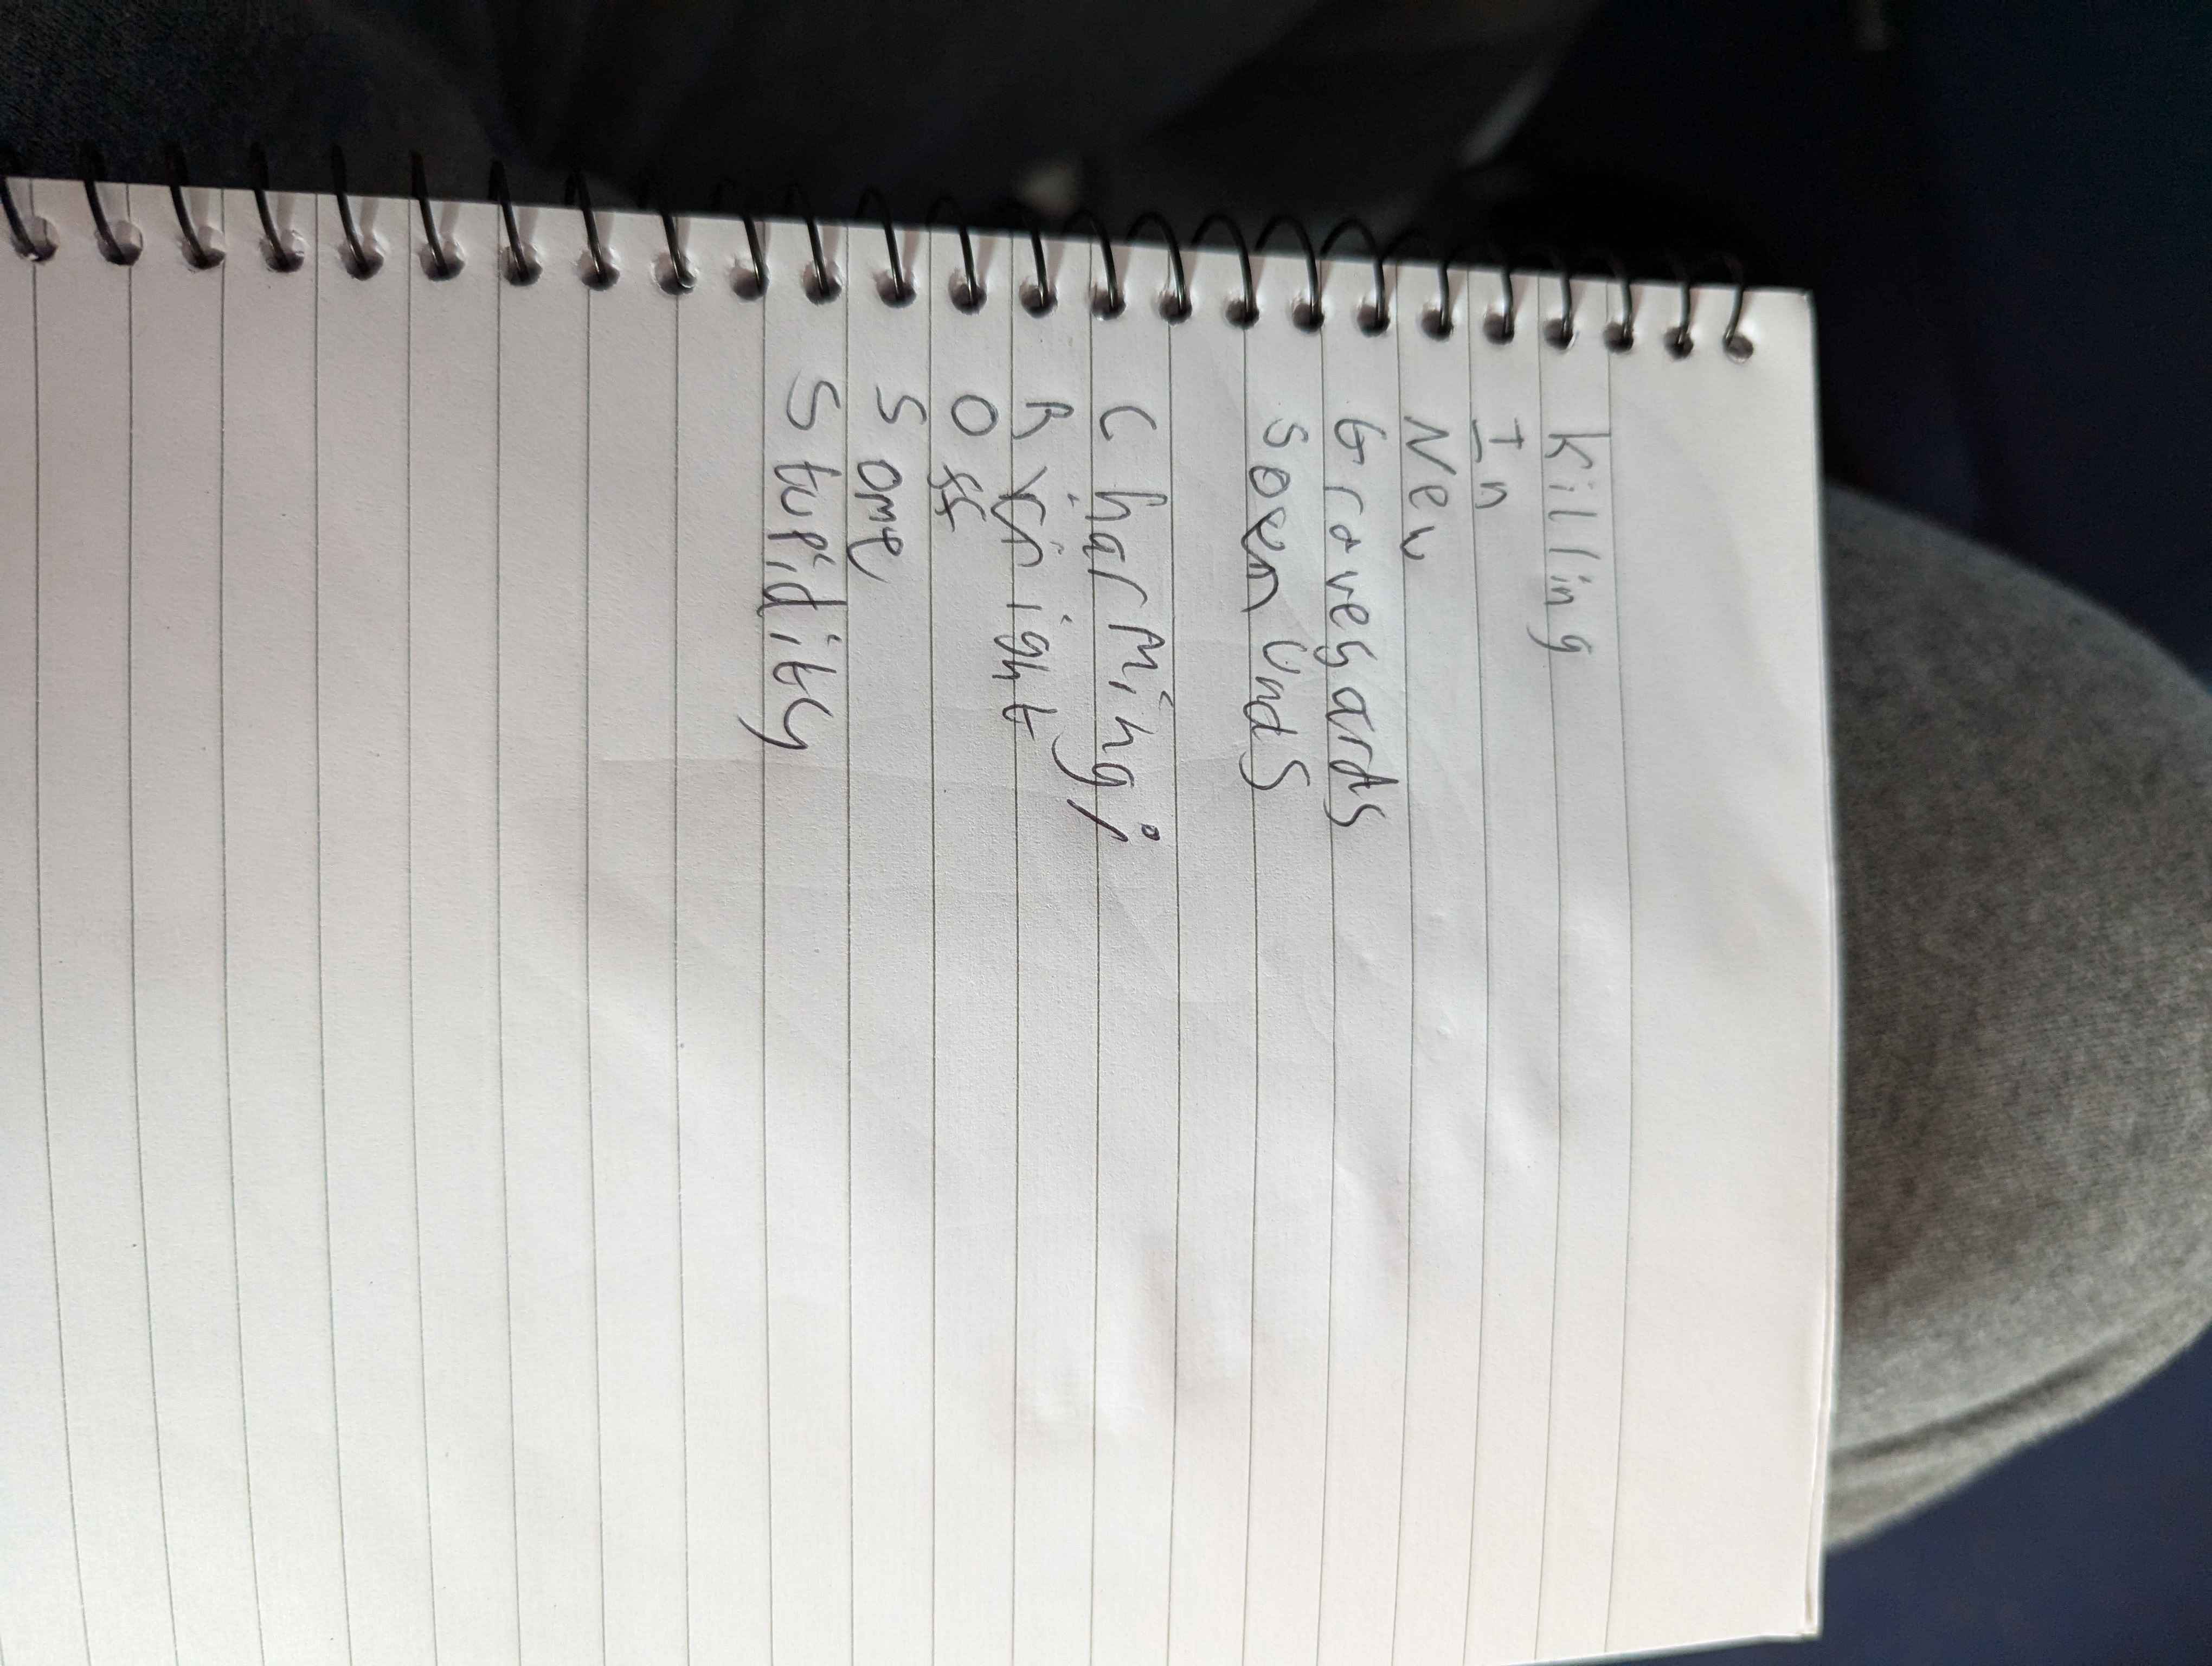 Killing
In
New
Graveyards
Sounds
Charming;
Right
Off
Some
Stupidity